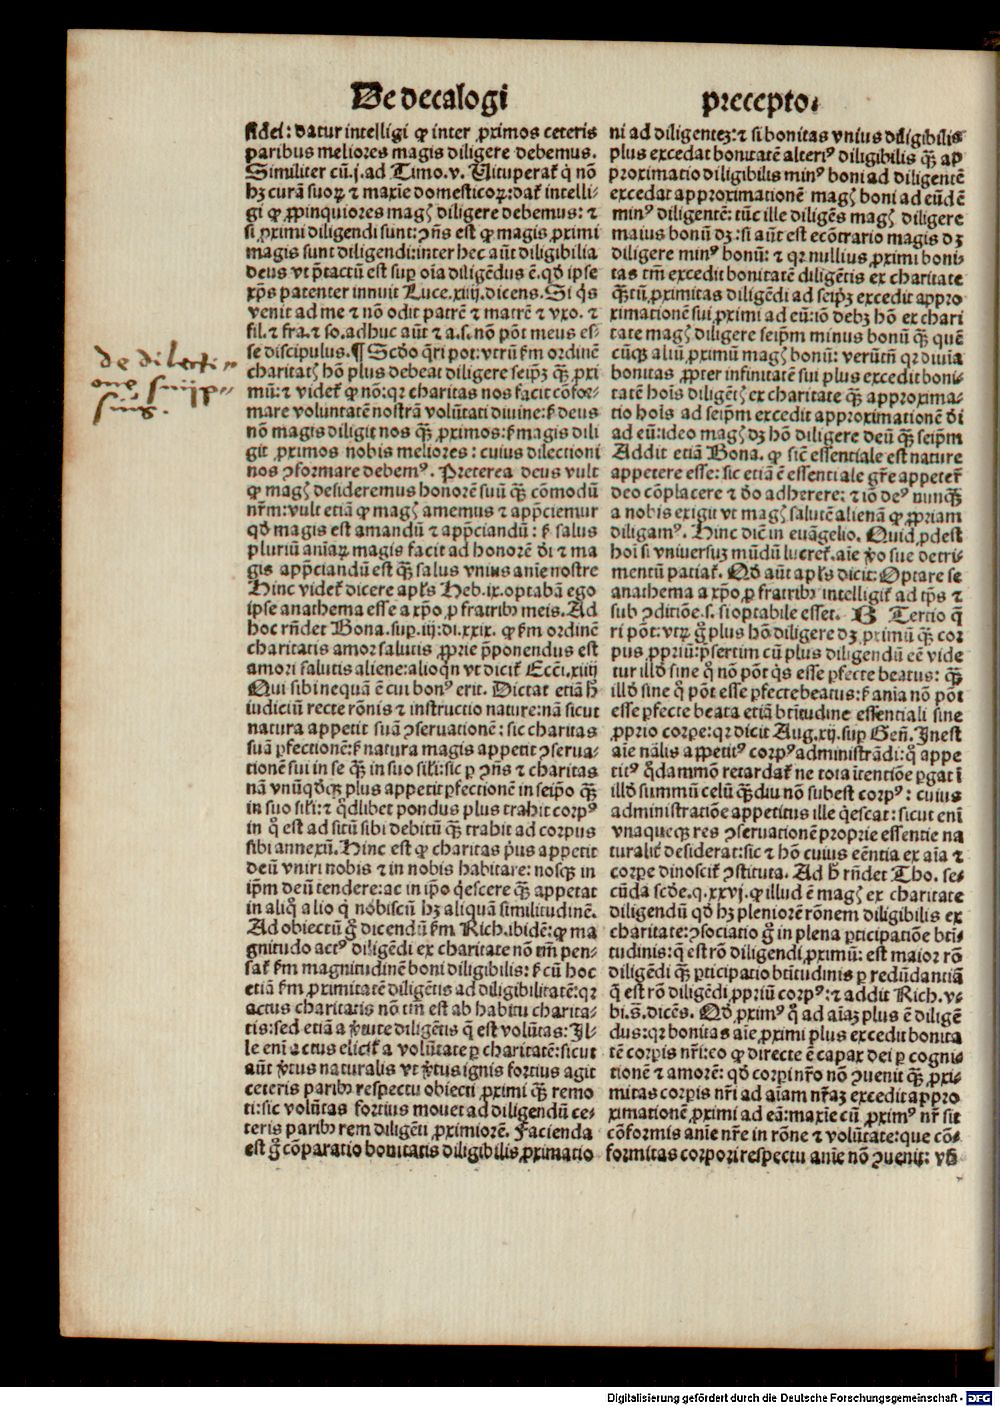 De decalogi
precepto⁊
fidei: datur intelligi ꝙ inter ꝓximos ceteris
paribus meliores magis diligere debemus.
Similiter cū.j.ad Timo.v. Uituperat̄ q̇ nō
hꝫ curā suoꝝ ⁊ maxīe domesticoꝝ:dat̄ intelli-
gi ꝙ ꝓpinquiores magꝭ diligere debemus: ⁊
si ꝓximi diligendi sunt:ↄn̄s est ꝙ magis ꝓximi
magis sunt diligendi:inter hec aūt diligibilia
deus vt p̄tactū est sup̱ oīa diligēdus ē.qd̕ ip̄e
xp̄s patenter innuit Luce.xiiij.dicens.Si q̇s
venit ad me ⁊ nō odit patrē ⁊ matrē ⁊ vxo. ⁊
fil.⁊ fra.⁊ so.adhuc aūt ⁊ a.s.nō pōt meus es-
se discipulus.¶ Scd̕o q̄ri pot: vtrū ẜm ordinē
charitatꝭ hō plus debeat diligere seip̄ꝫ q̄ꝫ ꝓxi
mū: ⁊ videt̄ ꝙ nō: qꝛ charitas nos facit cōfoꝛ-
mare voluntatē nostrā volūtati diuine: ẜꝫ deus
nō magis diligit nos q̄ꝫ ꝓximos:ẜꝫ magis dili
git ꝓximos nobis meliores: cuius dilectioni
nos ↄformare debemꝰ. Preterea deus vult
ꝙ magꝭ desideremus honorē suū q̄ꝫ cōmodū
nr̄m: vult etiā ꝙ magꝭ amemus ⁊ app̄ciemur
qd̕ magis est amandū ⁊ app̄ciandū: ẜꝫ salus
pluriū anīaꝝ magis facit ad honorē dei ⁊ ma
gis app̄ciandū est q̄ꝫ salus vnius anīe nostre
Hinc videt̄ dicere apl̄s Heb.ix.optabā ego
ipse anathema esse a xp̄o ꝓ fratribꝫ meis. Ad
hoc rn̄det Bona.sup.iij.di.xxix. ꝙ ẜm ordinē
charitatis amor salutis ꝓprie p̄ponendus est
amori salutis aliene:alioqn̄ vt dicit̄ Ecci.xiiij
Qui sibi nequā ē cui bonꝰ erit. Dictat etiā h̄
iudiciū recte rōnis ⁊ instructio nature:nā sicut
natura appetit suā ↄseruationē: sic charitas
suā ꝑfectionē:ẜꝫ natura magis appetit ↄserua-
tionē sui in se q̄ꝫ in suo sil̄i:sic ꝑ ↄn̄s ⁊ charitas
nā vnūqd̕qꝫ plus appetit ꝑfectionē in seip̄o q̄ꝫ
in suo sil̄i: ⁊ qd̕libet pondus plus trahit corpꝰ
in qͦ est ad sitū sibi debitū q̄ꝫ trahit ad corpus
sibi annexū. Hinc est ꝙ charitas p̄us appetit
deū vniri nobis ⁊ in nobis habitare: nosqꝫ in
ip̄m deū tendere:ac in ip̄o q̇escere q̄ꝫ appetat
in aliqͦ alio q̇ nobiscū hꝫ aliquā similitudinē.
Ad obiectū gͦ dicendū ẜm Rich.ibidē: ꝙ ma
gnitudo actꝰ diligēdi ex charitate nō tm̄ pen-
sat̄ ẜm magnitudinē boni diligibilis: ẜꝫ cū hoc
etiā ẜm ꝓximitatē diligētis ad diligibilitatē:qꝛ
actus charitatis nō tm̄ est ab habitu charita-
tis:sed etiā a v̕tute diligētis q̄ est volūtas: Il-
le eni actus elicit̄ a volūtate ꝑ charitatē:sicut
aūt v̕tus naturalis vt v̕tus ignis fortius agit
ceteris paribꝫ respectu obiecti ꝓximi q̄ꝫ remo
ti:sic volūtas fortius mouet ad diligendū ce-
teris paribꝫ rem diligēti ꝓximiorē. Facienda
est gͦ cōparatio bonitatis diligibilis ꝓximatio
ni ad diligentez:⁊ si bonitas vnius diligibilis
plus excedat bonitatē alteriꝰ diligibilis q̄ꝫ ap
proximatio diligibilis minꝰ boni ad diligentē
excedat approximationē magꝭ boni ad eūdē
minꝰ diligentē: tūc ille diligēs magꝭ diligere
maius bonū dꝫ: si aūt est ecōtrario magis dꝫ
diligere minꝰ bonū: ⁊ qꝛ nullius ꝓximi boni-
tas tm̄ excedit bonitatē diligētis ex charitate
q̄ꝫtū ꝓximitas diligēdi ad seip̄ꝫ excedit appro
ximationē sui ꝓximi ad eū:iō debꝫ hō ex chari
tate magꝭ diligere seip̄m minus bonū q̄ꝫ quē
cūqꝫ aliū ꝓximū magꝭ bonū: verūtn̄ qꝛ diuīa
bonitas ꝓpter infinitatē sui plus excedit boni-
tatē hoīs diligētꝭ ex charitate q̄ꝫ approxima-
tio hoīs ad seip̄m excedit approximationē dei
ad eū:ideo magꝭ dꝫ hō diligere deū q̄ꝫ seip̄m
Addit etiā Bona. ꝙ sic̄ essentiale est nature
appetere esse: sic etiā ē essentiale gr̄e appeter̄
deo cōplacere ⁊ deo adherere: ⁊ iō deꝰ nunq̄ꝫ
a nobis exigit vt magꝭ salutē alienā ꝙ ꝓpriam
diligamꝰ. Hinc dic̄ in euāgelio. Quid ꝓdest
hoī si vniversuꝫ mūdū lucret̄.aīe vo sue detri-
mentū patiat̄. Qd̕ aūt apl̄s dicit: Optare se
anathema a xp̄o ꝓ fratribꝫ intelligit̄ ad tp̄s ⁊
sub ↄditiōe.s. si optabile esset. B Tertio q̄
ri pōt: vtꝝ gͦ plus hō diligere dꝫ ꝓximū q̄ꝫ cor
pus ꝓpriū:p̄sertim cū plus diligendū eē vide
tur illd̕ sine qͦ nō pōt q̇s esse ꝑfecte beatus: q̄ꝫ
illd̕ sine qͦ pōt esse ꝑfecte beatus:ẜꝫ anīa nō pōt
esse ꝑfecte beata etiā btītudine essentiali sine
ꝓprio corpe:qꝛ dicit Aug.xij.sup Gen̄. Inest
aīe nālis appetitꝰ corpꝰ administrādi:qͦ appe
titꝰ qͦdammō retardat̄ ne tota ītentiōe ꝑgat ī
illd̕ summū celū q̄ꝫdiu nō subest corpꝰ: cuius
administratiōe appetitus ille q̇escat: sicut eni
vnaqueqꝫ res ↄseruationē proprie essentie na
turalit̕ desiderat:sic ⁊ hō cuius eēntia ex aīa ⁊
corpe dinoscit̄ ↄstituta. Ad h̄ rn̄det Tho. se-
cūda scd̕e.q.xxvj.ꝙ illud ē magꝭ ex charitate
diligendū qd̕ hꝫ pleniorē rōnem diligibilis ex
charitate:ↄsociatio gͦ in plena ꝑticipatiōe btī-
tudinis:q̄ est rō diligendi ꝓximū: est maior rō
diligēdi q̄ꝫ ꝑticipatio btītudinis ꝑ redūdantiā
q̄ est rō diligēdi ꝓpriū corpꝰ:⁊ addit Rich. v-
bi.s̄.dicēs. Qd̕ ꝓximꝰ qͦ ad aīaꝫ plus ē diligē
dus:qꝛ bonitas aīe ꝓximi plus excedit bonita
tē corpis nr̄i:eo ꝙ directe ē capax dei ꝑ cogni
tionē ⁊ amorē: qd̕ corpi nr̄o nō ↄuenit q̄ꝫ ꝓxi-
mitas corpis nr̄i ad aīam nr̄aꝫ excedit appro
ximationē ꝓximi ad eā: maxīe cū ꝓximꝰ nr̄ sit
cōformis anīe nr̄e in rōne ⁊ volūtate:que cō-
formitas corpori respectu anīe nō ↄuenit: vn̄
de dilecti-
one
Digitalisierung gefördert durch die Deutsche Forschungsgemeinschaft - DFG